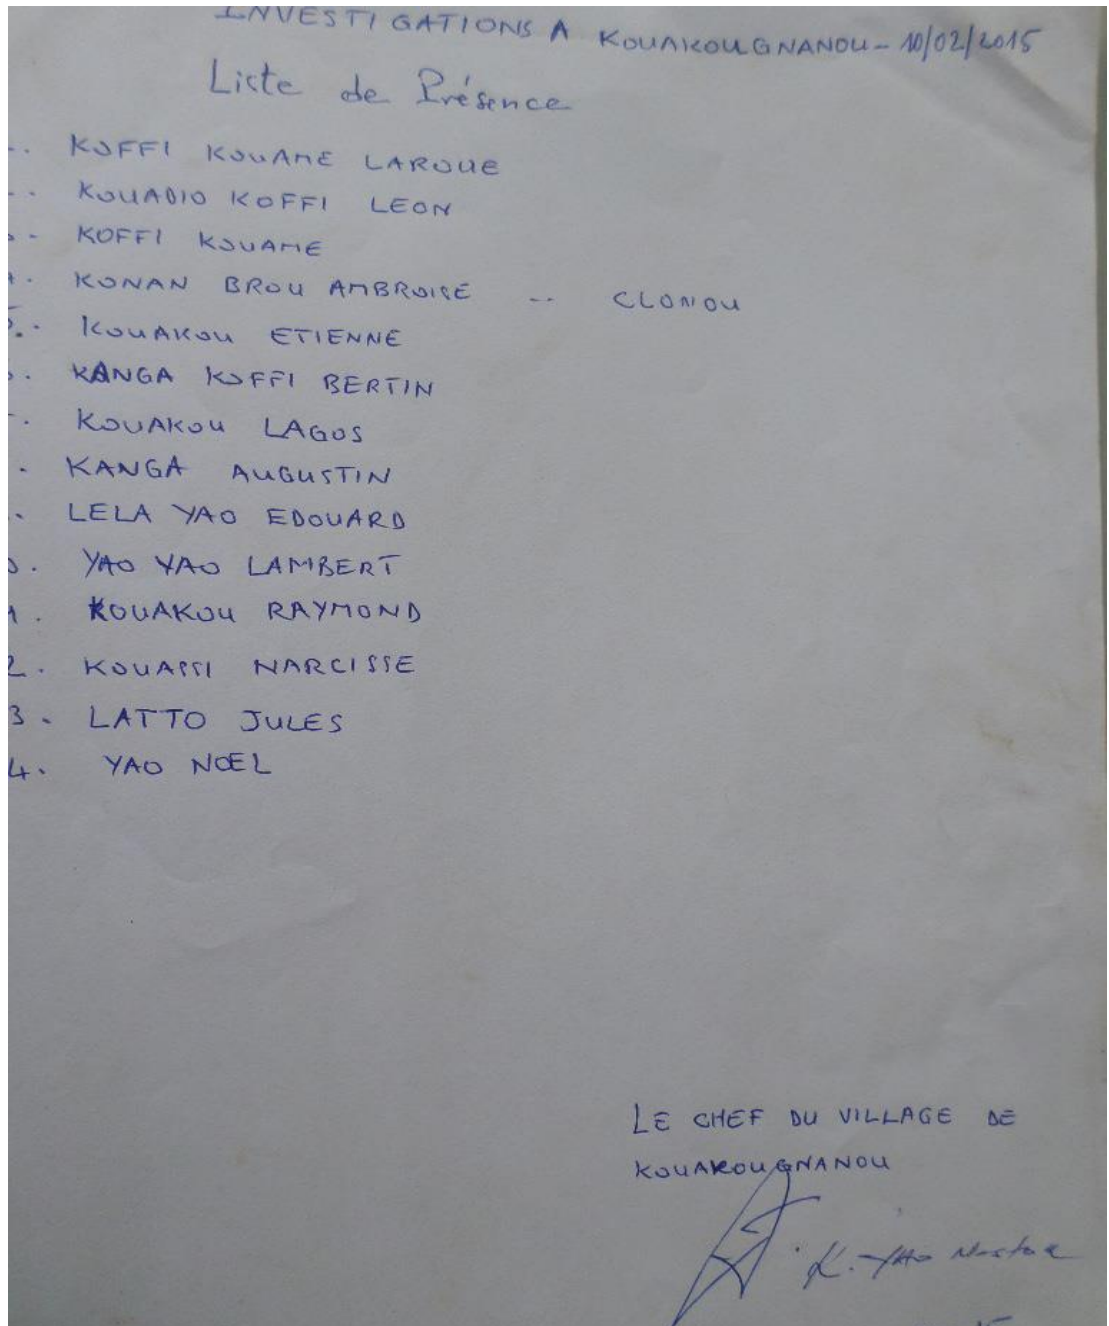 INVESTIGATIONS A KOUAKOUGNANOU - 10/02/2015
Liste de Présence
. KOFFI KOUAME LAROUE
. KOUADIO KOFFI LEON
- KOFFI KOUAME
. KONAN BROU AMBROISE -- CLONOU
5. KOUAKOU ETIENNE
. KANGA KOFFI BERTIN
. KOUAKOU LAGOS
. KANGA AUGUSTIN
. LELA YAO EDOUARD
. YAO YAO LAMBERT
1. KOUAKOU RAYMOND
2. KOUASSI NARCISSE
3. LATTO JULES
4. YAO NOEL
LE CHEF DU VILLAGE DE
KOUAKOUGNANOU
K. YAO Nestor